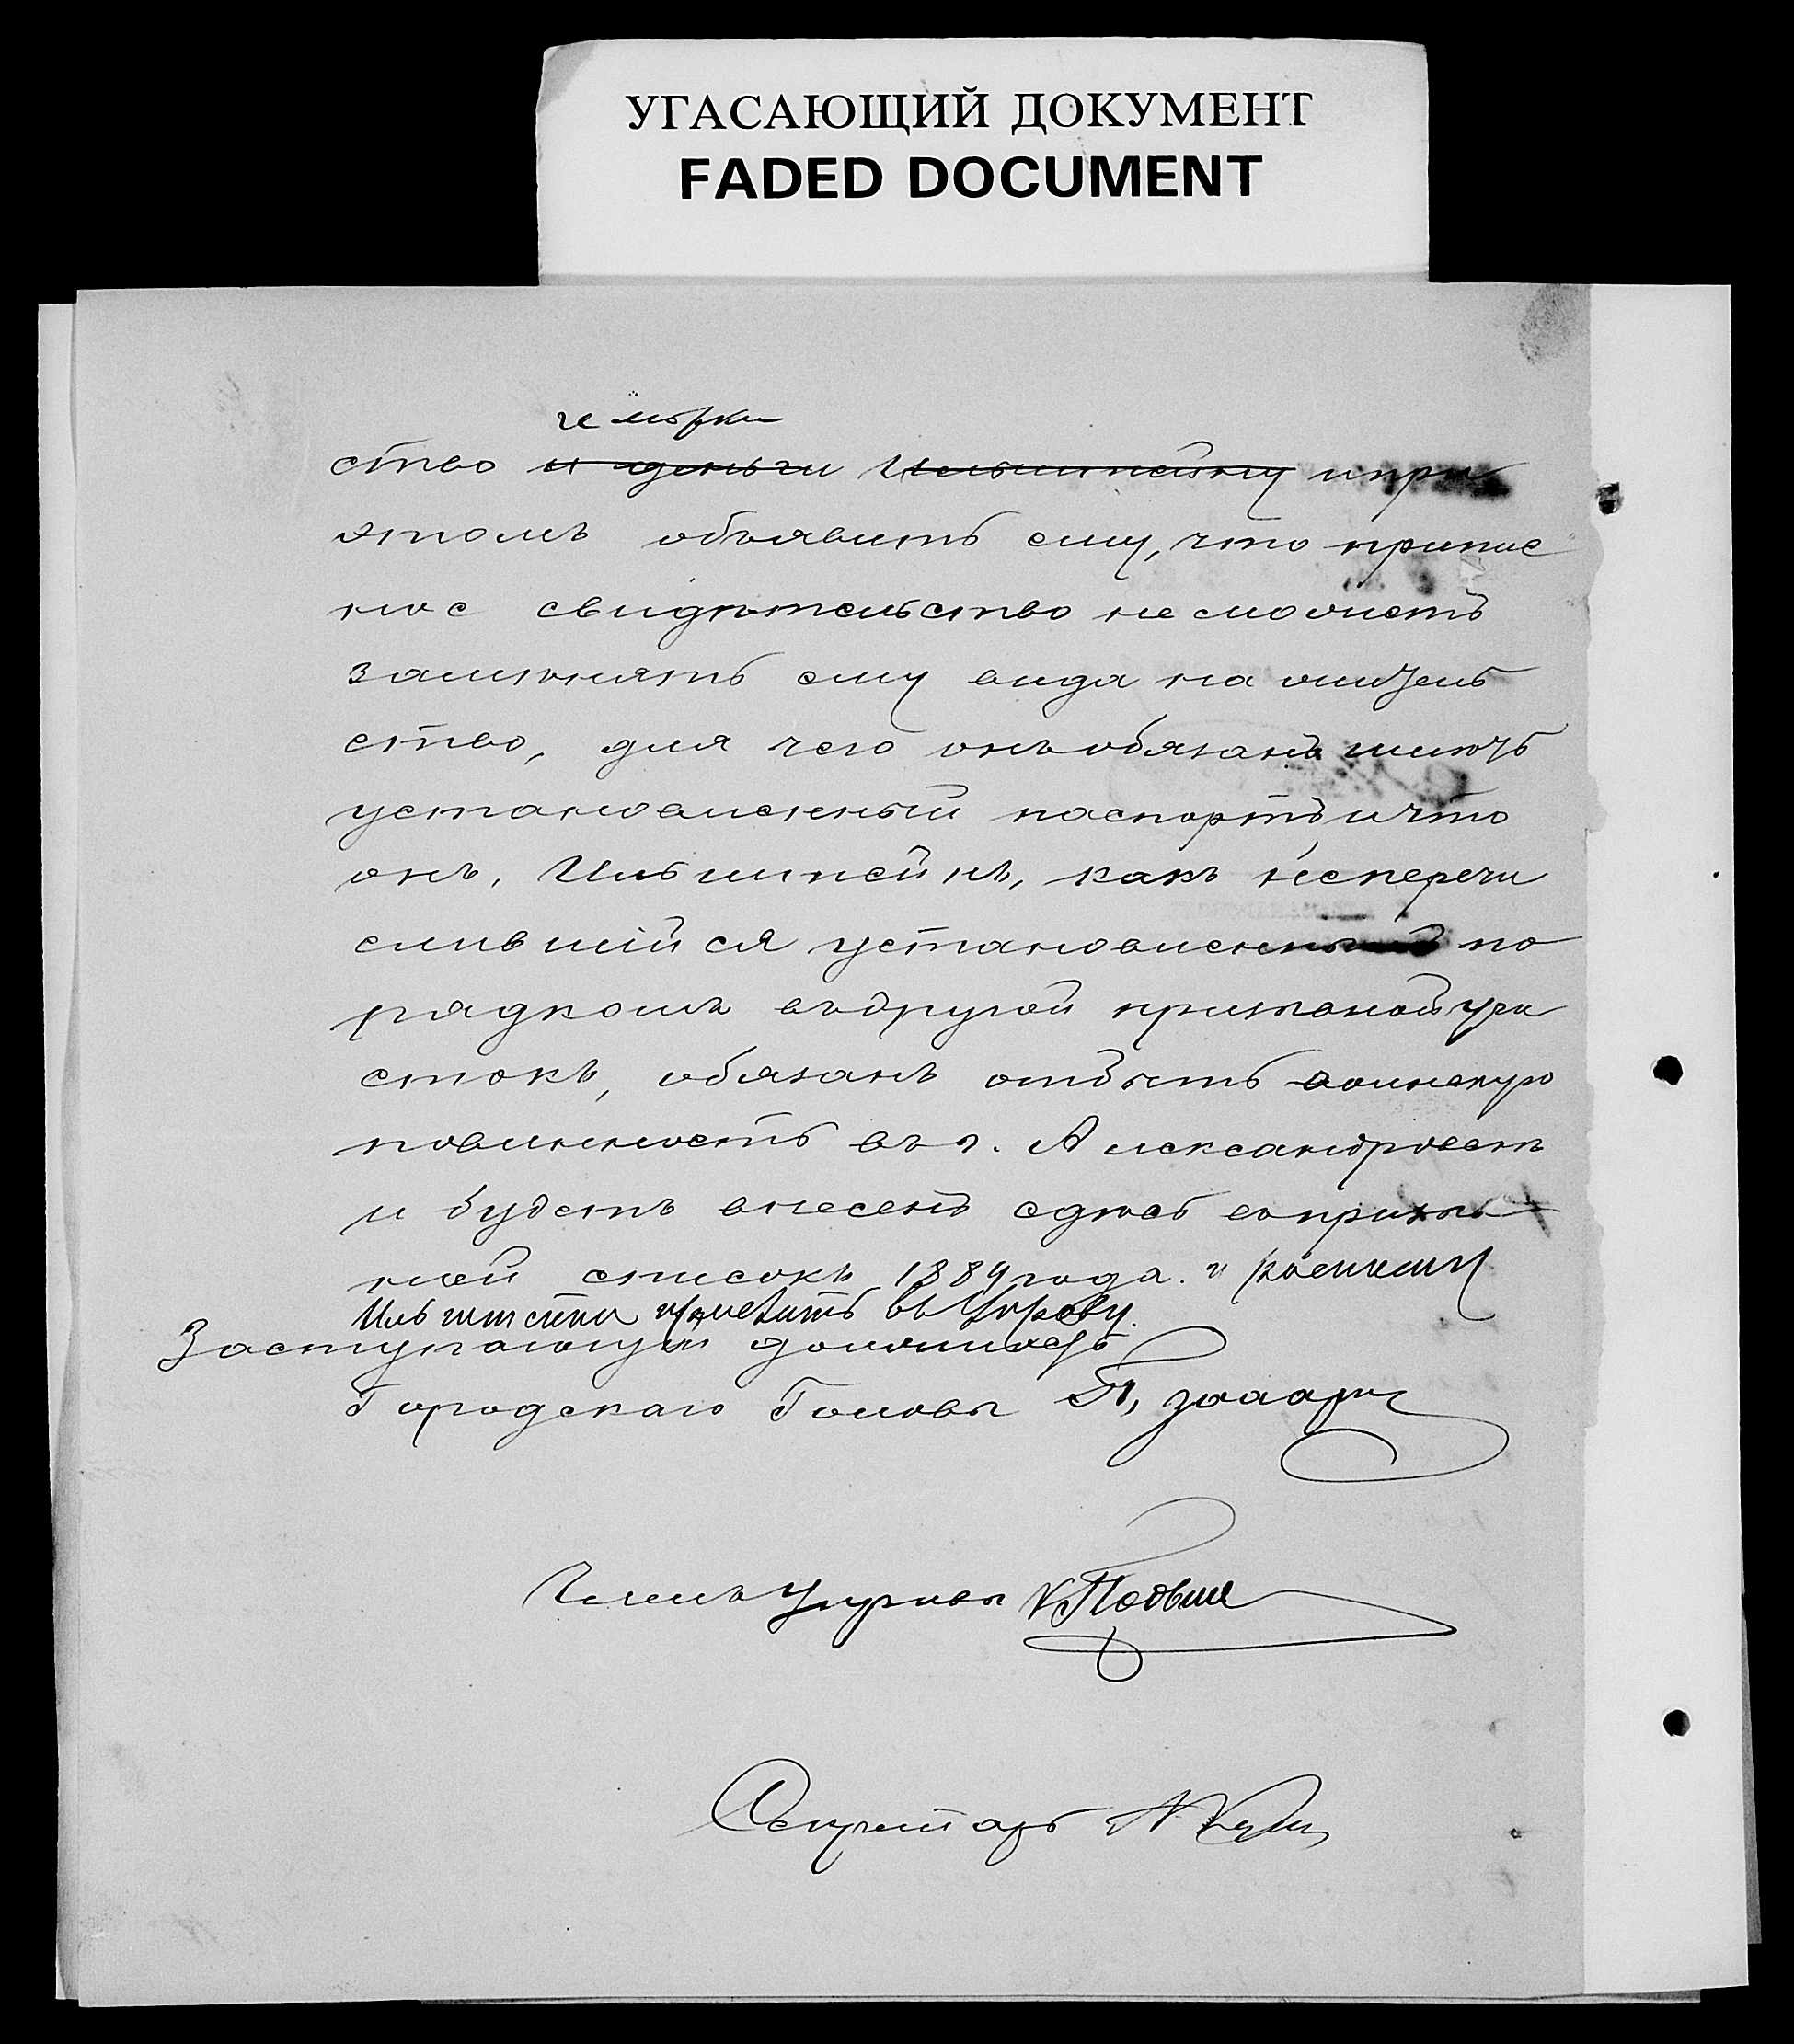 УГАСАЮЩИЙ ДОКУМЕНТ
FADED DOCUMENT
ство и деньги Ильштейну и при
этомъ объявить ему, что припис
ное свидѣтельство не можетъ
замѣнять ему вида на житель
ство, для чего онъ обязанъ имѣть
установленный паспортъ и что
онъ, Ильштейнъ, какъ неперечи
слившійся установленным по
рядкомъ въ другой призывной уча
стокъ, обязанъ отбыть воинскую
повинность въ г. Александровскѣ
и будетъ внесенъ здѣсь въ призыв
ной списокъ 1889 года. и росписку
Ильштейна прислать въ Управу.
Заступающій должность
Городскаго Головы
Членъ Управы
Секретарь